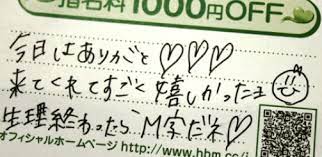 指名料1000円OFF
今日はありがと♡♡♡
来てくれてすごく嬉しかったョ
生理終わったら M字だネ♡
オフィシャルホームページ http://www.hbm.c